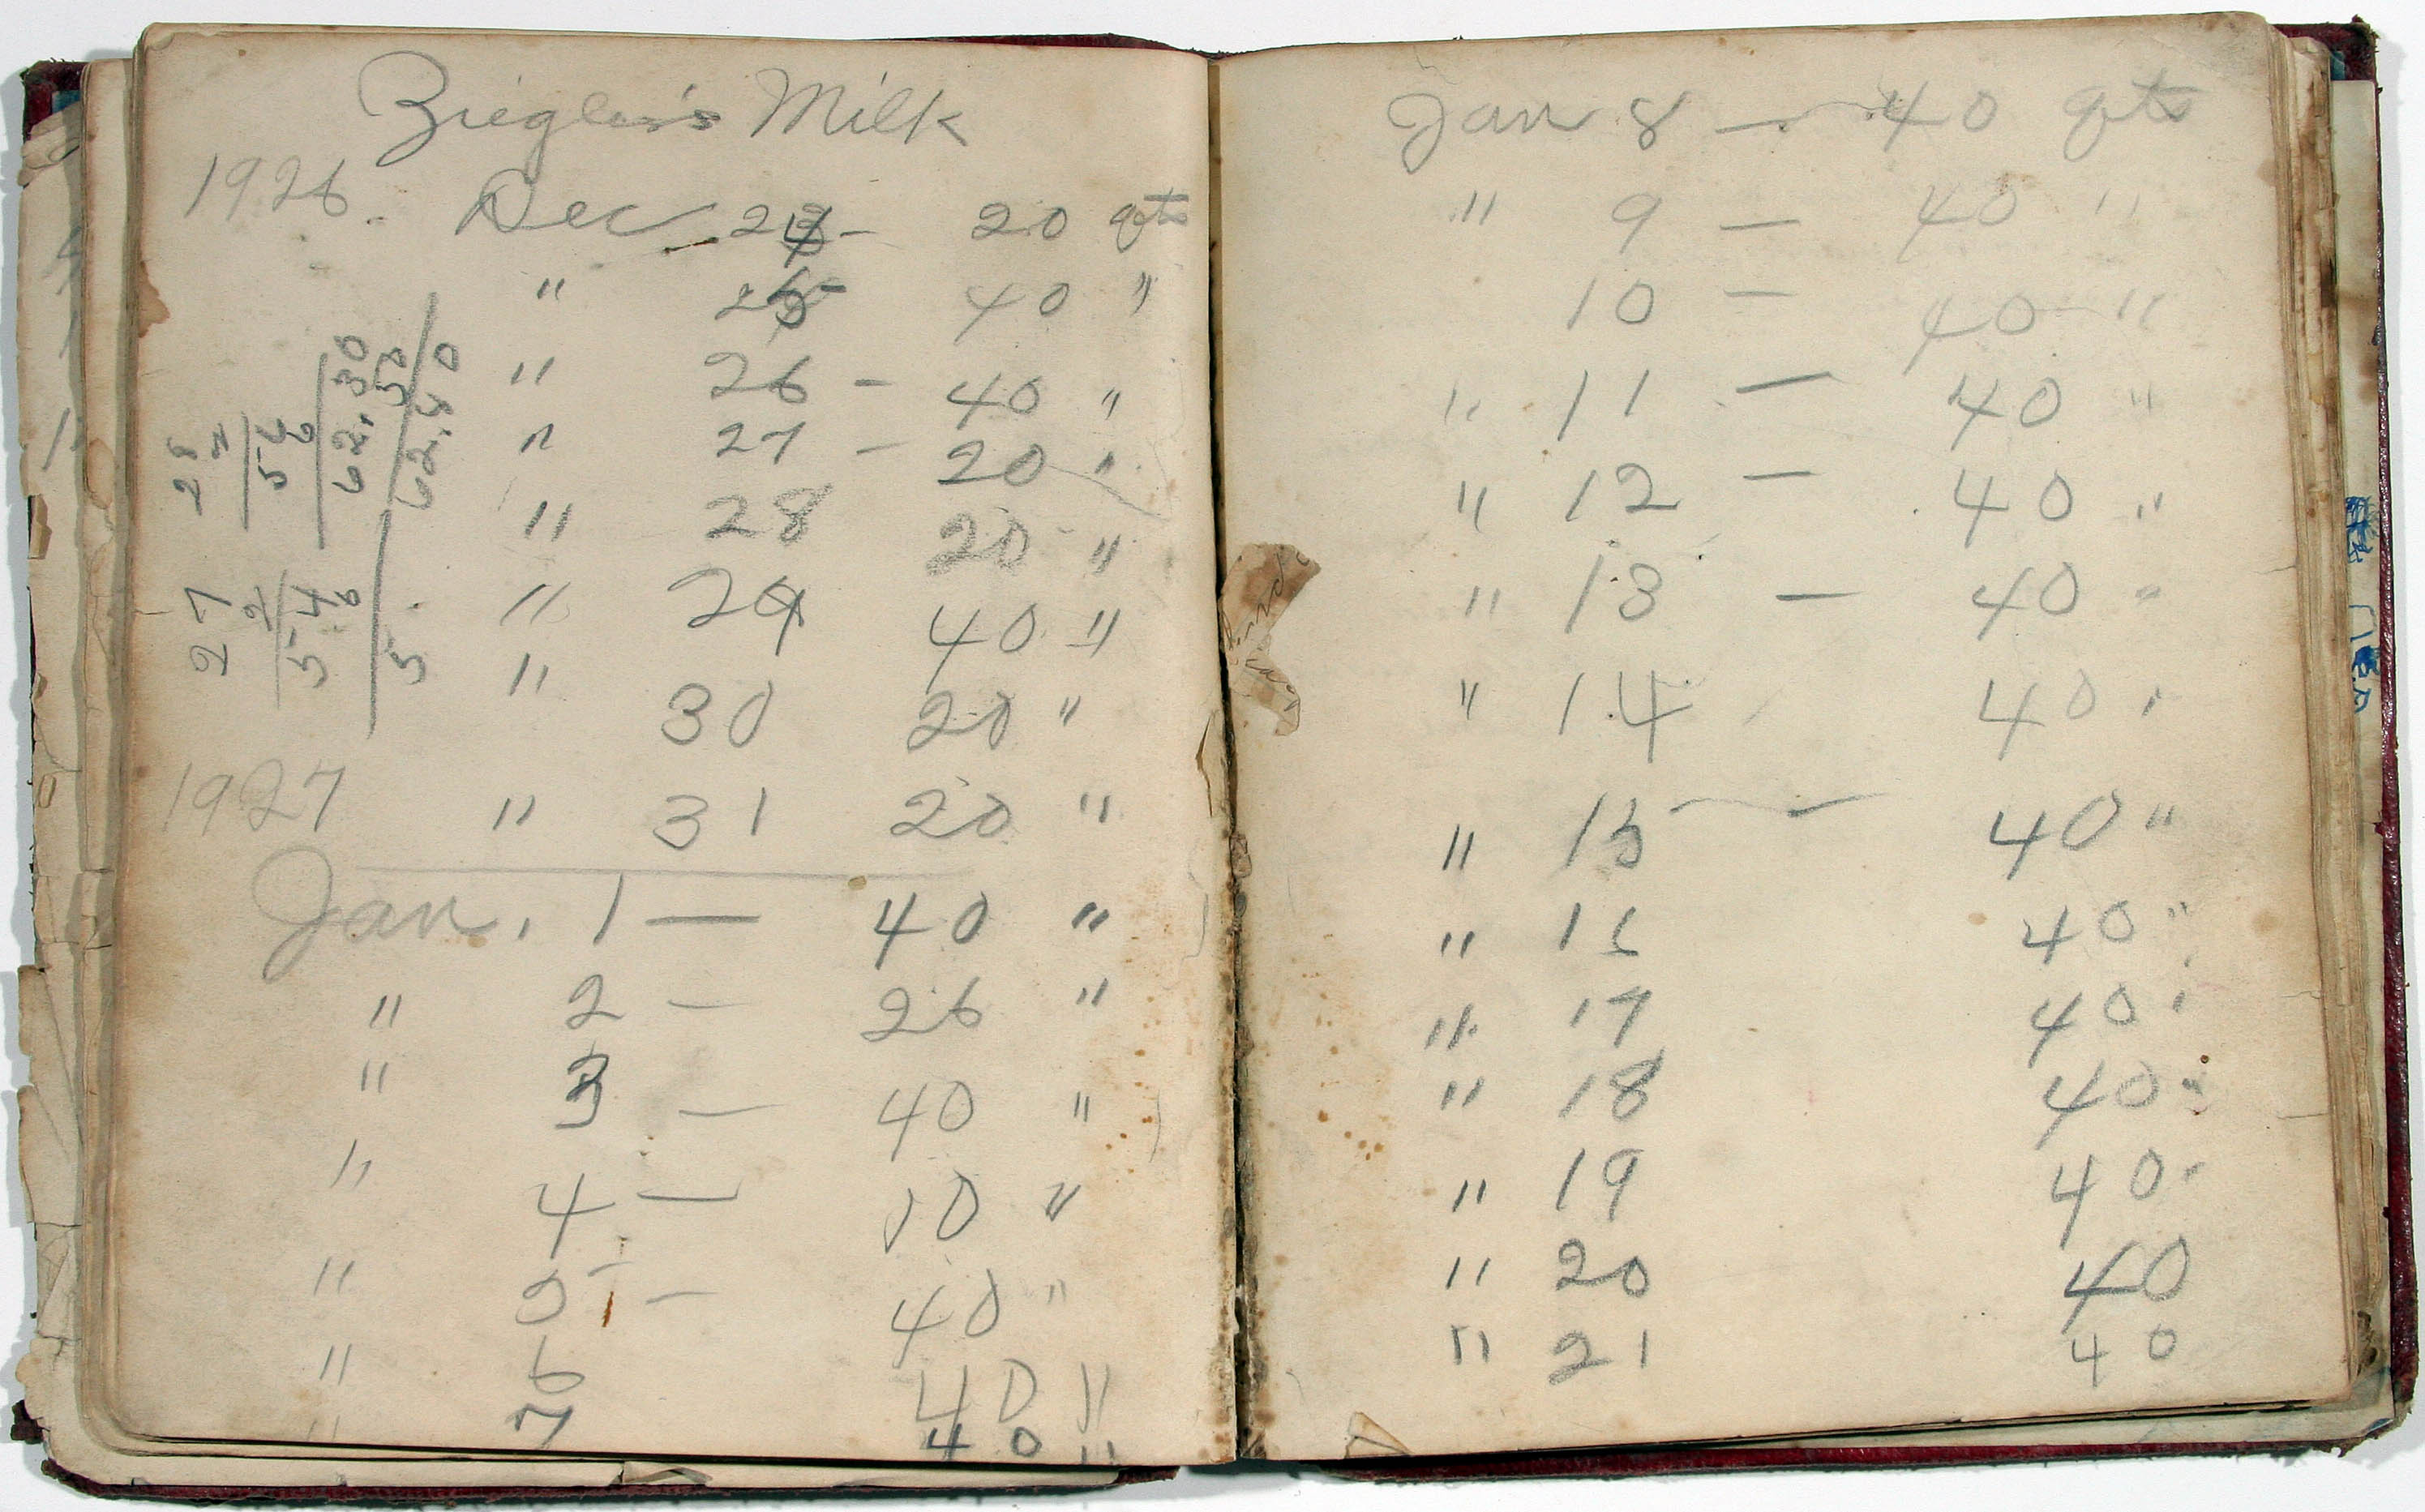 Ziegler's Milk
1926. Dec 24 - 20 qts
" 25 - 40 "
" 26 - 40 "
" 27 - 20 "
" 28 20 "
" 29 40 "
" 30 20 "
1927 " 31 20 "
Jan. 1 — 40 "
" 2 - 26 "
" 3 - 40 "
" 4 — 10 "
" 5 - 40 "
" 6 40 "
" 7 40 "
28
2
56
6
62.30
62.40
27
2
54
6
5
Jan 8 — 40 qts
" 9 — 40 "
10 — 40 "
" 11 — 40 "
" 12 — 40 "
" 13 — 40 "
" 14 40 "
" 15 — 40 "
" 16 40 "
" 17 40 "
" 18 40 "
" 19 40 "
" 20 40
" 21 40